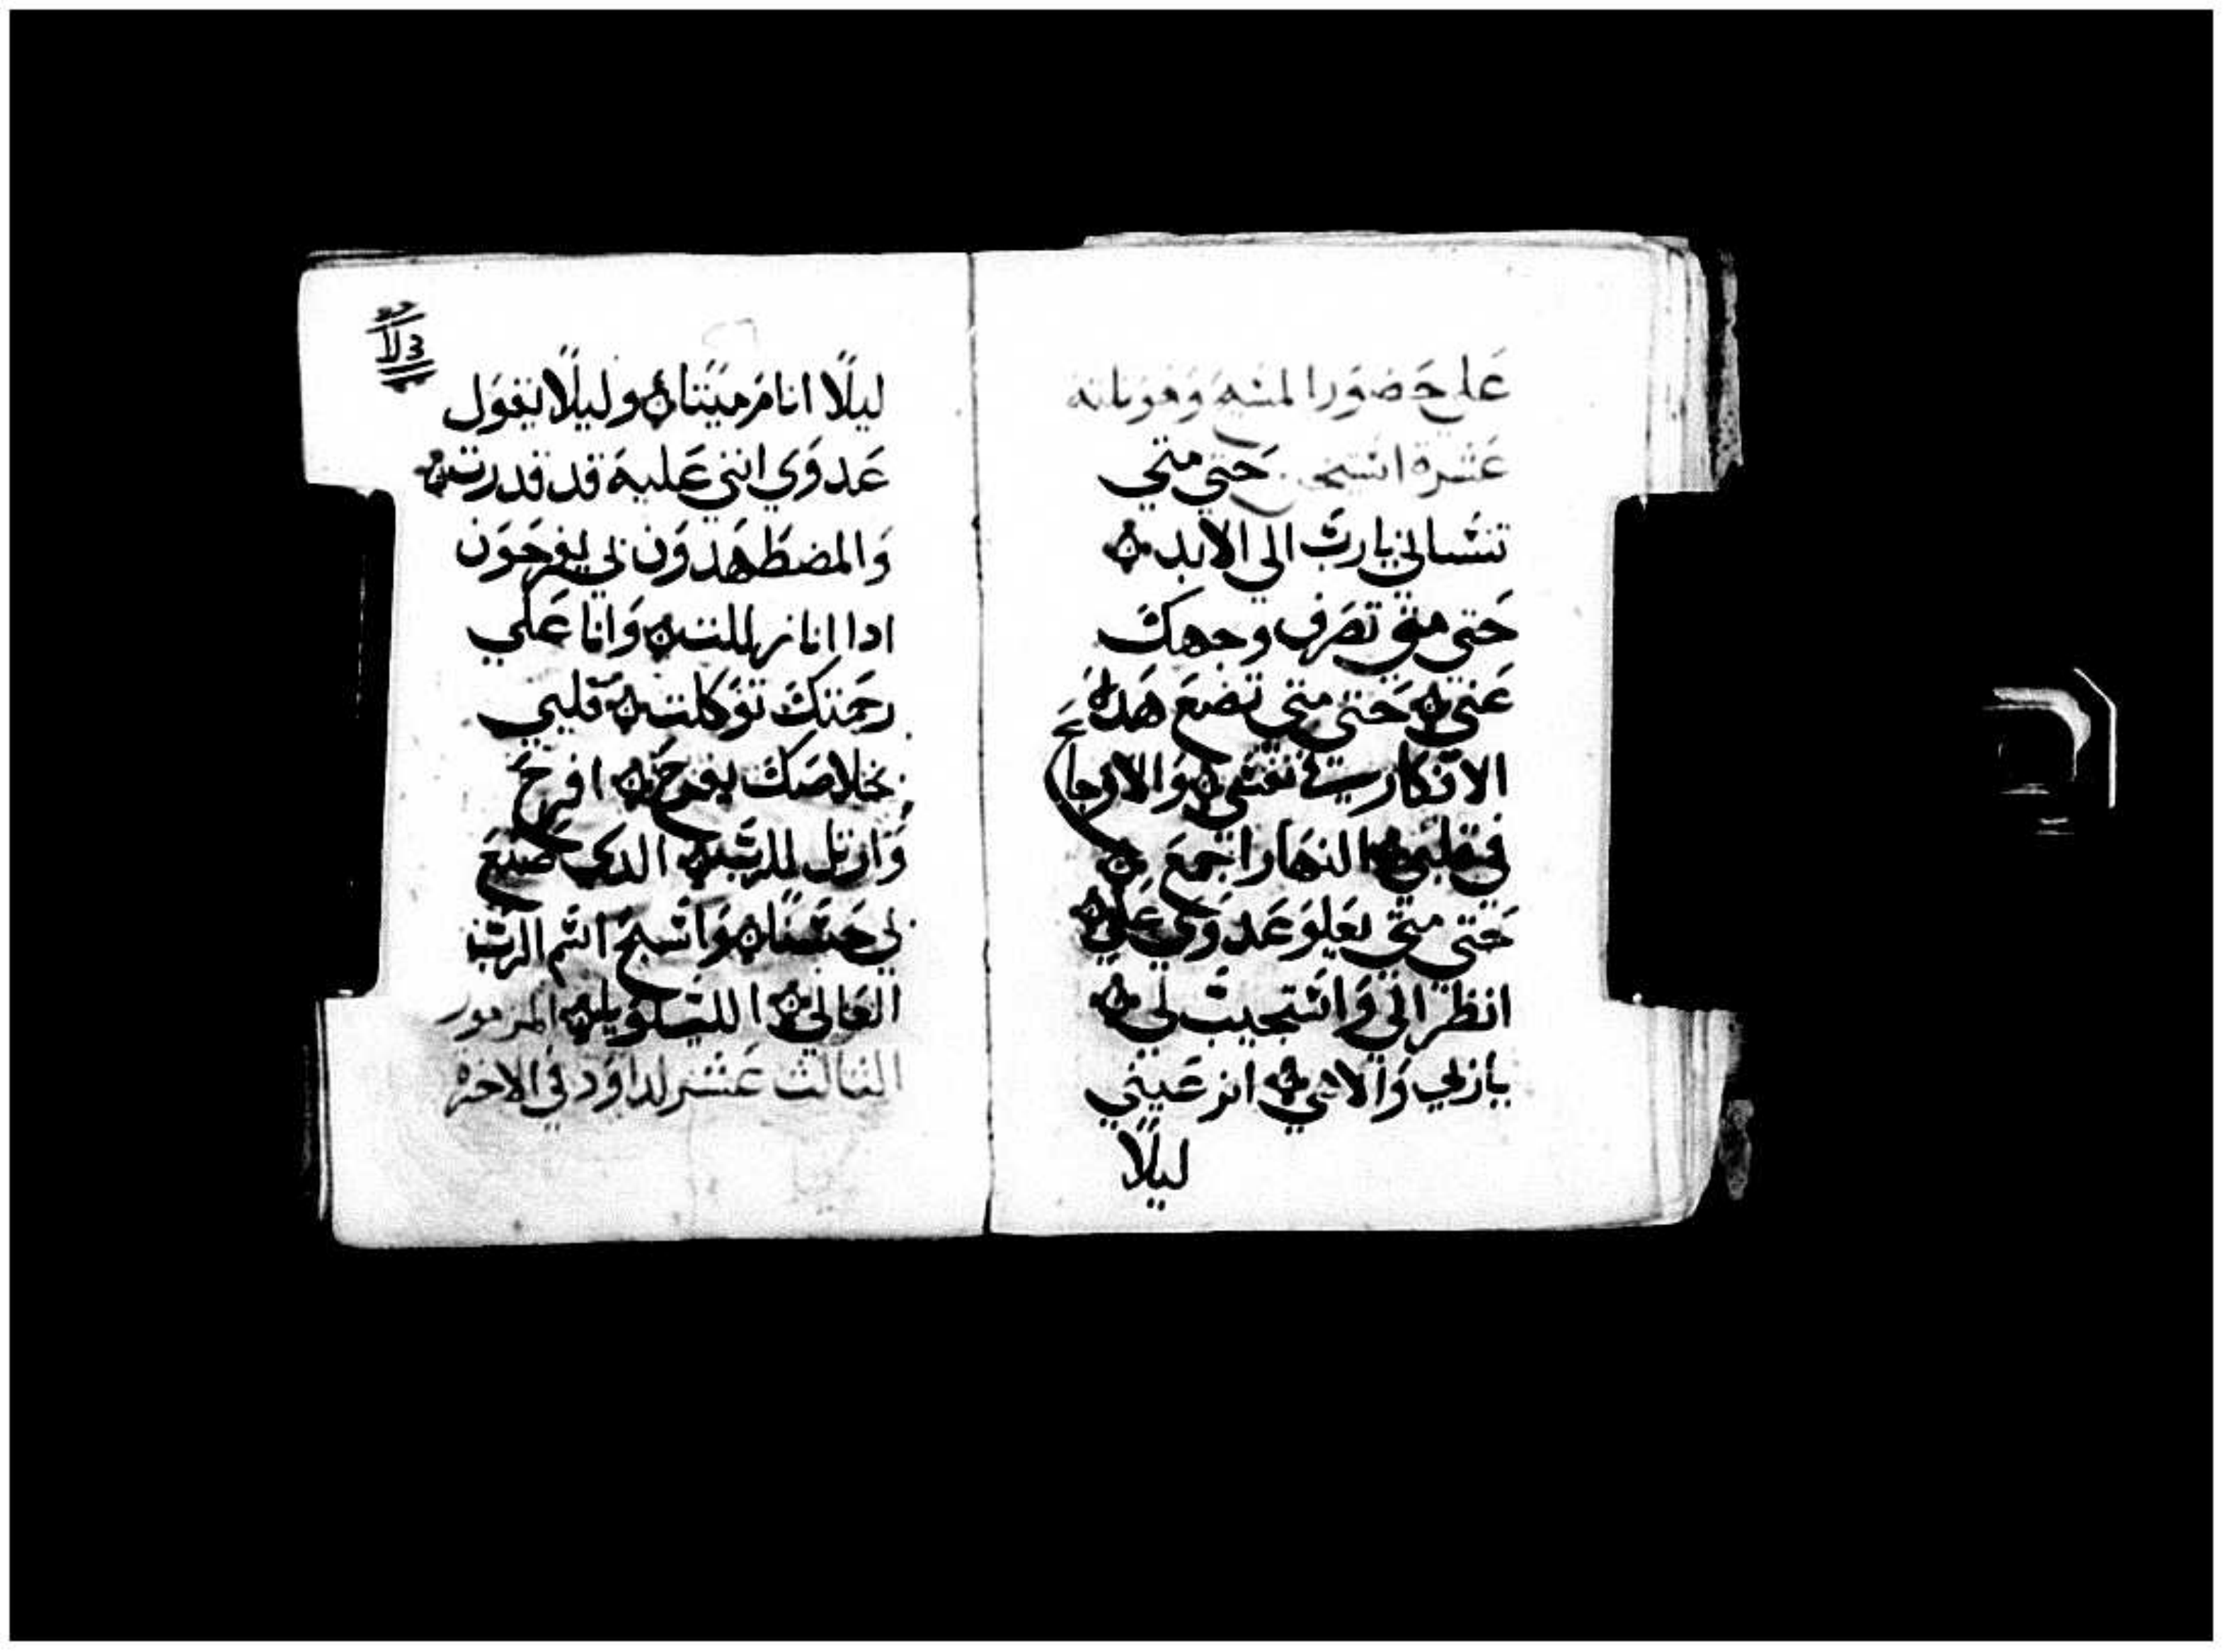 على حضور المسيح وهو ثلثة
عشرة استيخن حَتي متي
تنسَاني يا ربّ الي الابد
حَتي متي تصَرف وجهكَ
عَني حَتي متي تضعَ هَده
الافكار في نفسَي وَالاوجاعَ
في قلبي النهار اجمعَ
حَتي متي يعَلوَ عَدوَي عَلي
انظر اليّ وَاسَتجيبَ لي
ياربي وَالاهي انر عَيني
ليلًا
ليلًا انامَ ميَتًا وليلًا يقوَل
عَدوَي انني عَليهَ قد قدرت
وَالمضطَهَدوَن لي يفرَحوَن
ادا انا زللت وَانا عَلي
رحَمتكَ توَكلت قلبي
بخلاصَكَ يفرحَ افرحَ
وَارتل للربّ الدي صَنعَ
لي حَسَنًا وَاسَبحَ اسَم الربّ
العَالي الليسَلوَيا المزمور
التالت عَشر لداوَد في الاخرة